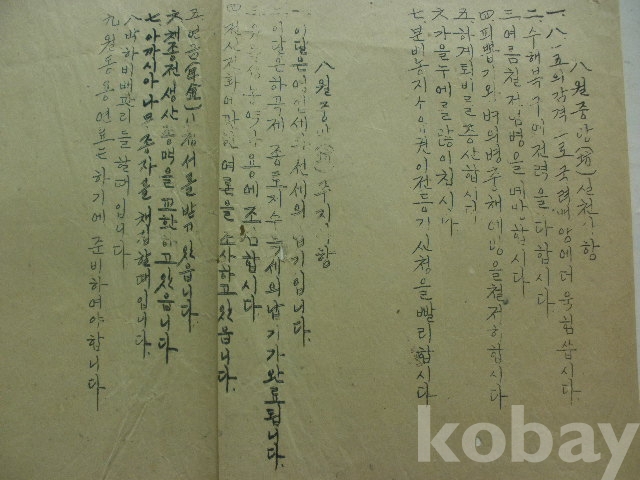 八월중 실천사항
一. 八·一五의 감격 으로 국력배양에 더욱 힘씁시다
二. 수해복구에 전력을 다합시다
三. 여름철 전염병을 예방합시다
四. 피뽑기와 벼의병충해예방을철저히합시다
五. 하계퇴비를 증산합시다
六. 가을누에를 많이칩시다
七. 분배농지 이전등기 신청을 빨리합시다
八월중 주지사항
一. 이달은 납기입니다.
二. 이달은하곡제一종토지수득세의납기가완료됩니다.
三. 농약사용에 조심합시다
四. 여론을 조사하고있읍니다.
五. 연금(年金) 받고있읍니다
六. 채종전생산 교환하고있읍니다.
七. 아까시아나무종자를 채취할때입니다.
八. 박하비배관리를할때입니다
九. 월동용연료는하기에준비하여야합니다.
kobay